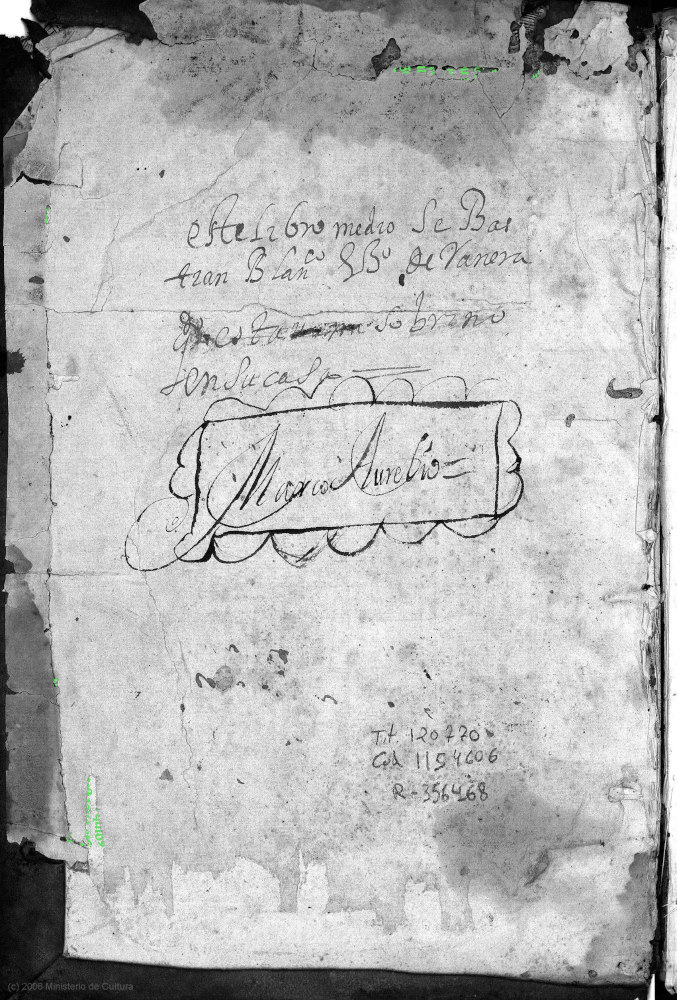 este libro me dio Se Bas
tian Blanco Vº de Vanera
questa sobrino
en su casa
Marco Aurelio =
Tit 120770
Cod 1154606
R-356468
(c) 2006 Ministerio de Cultura